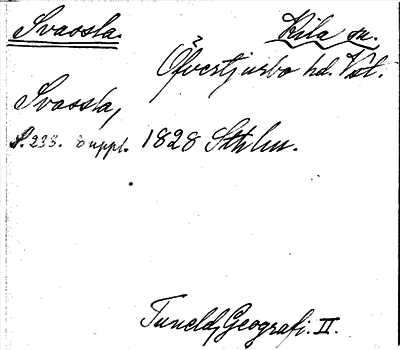 Svassta. Kila sn.
Öfvertjurbo hd. Vst.
Svassta,
S. 233. Suppl. 1828 Sthlm.
Tuneld, Geografi. II.